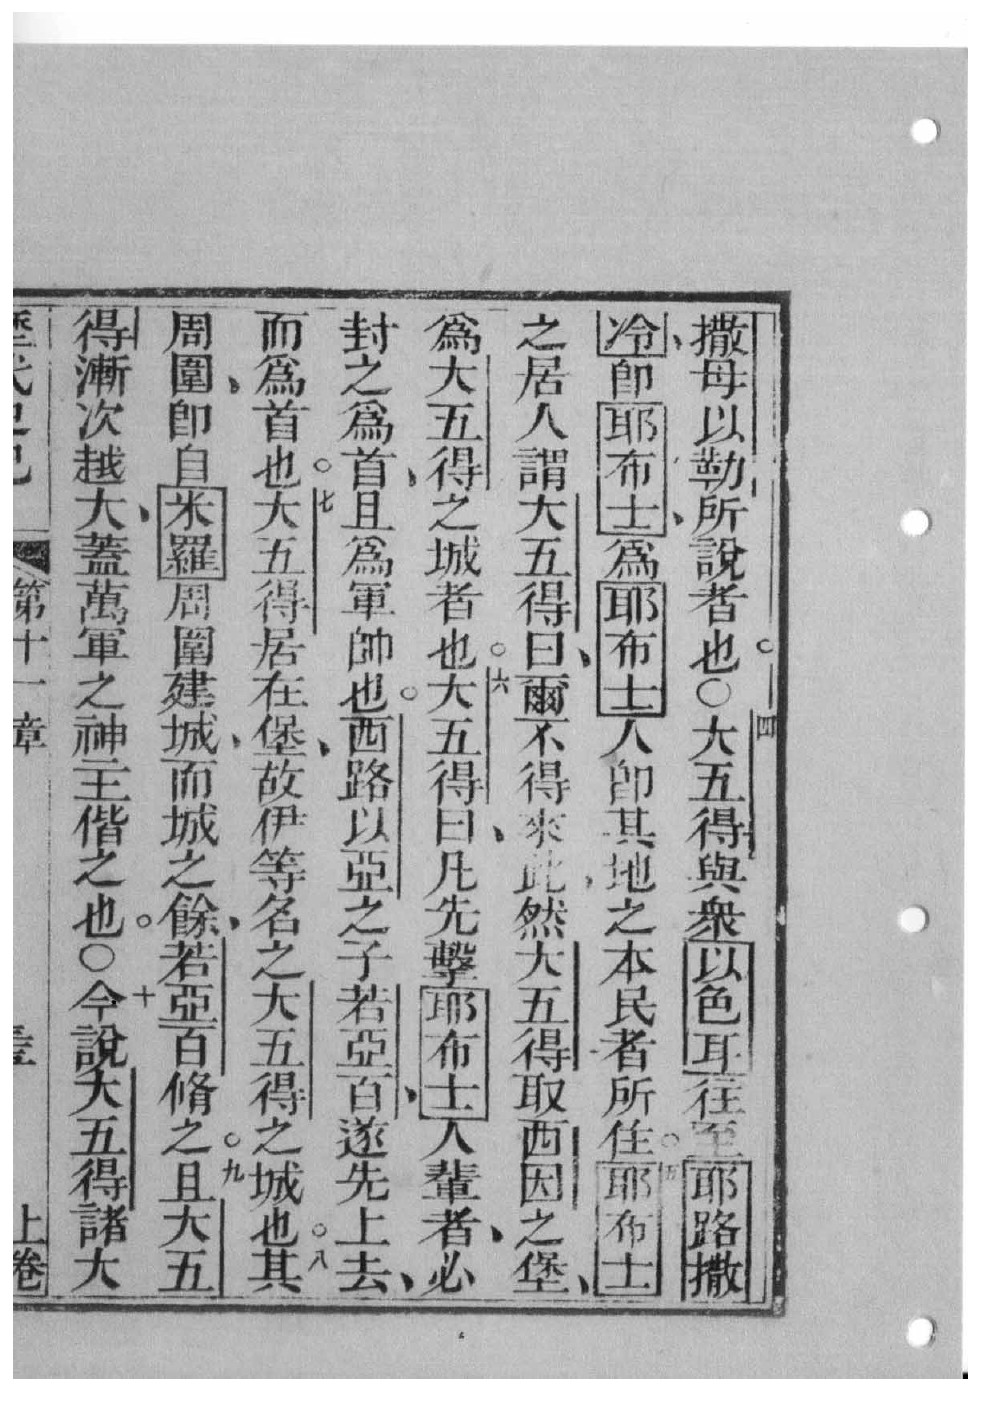 撒母以勒所說者也。○四大五得與衆以色耳往至耶路撒
冷、即耶布士、爲耶布士人即其地之本民者所住。五耶布士
之居人謂大五得曰、爾不得來此、然大五得取西因之堡、
爲大五得之城者也。六大五得曰、凡先擊耶布士人輩者、必
封之爲首、且爲軍帥也。西路以亞之子若亞百、遂先上去、
而爲首也。七大五得居在堡、故伊等名之大五得之城也。八其
周圍、即自米羅周圍建城、而城之餘、若亞百脩之。九且大五
得漸次越大、蓋萬軍之神主偕之也。○十今說大五得諸大
歷代史記 第十一章 上卷